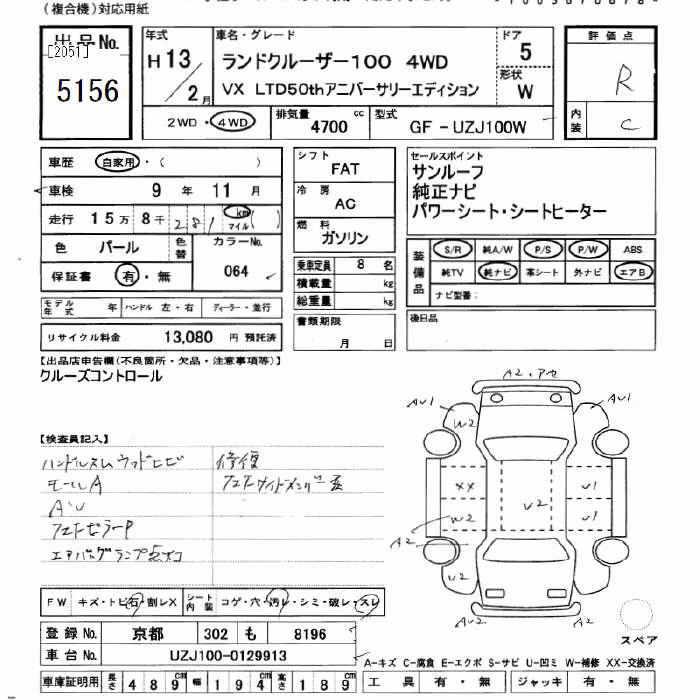 (複合機)対応用紙
出品No.
[2051]
5156
年式
H13/2月
車名・グレード
ランドクルーザー100 4WD
VX LTD50thアニバーサリーエディション
ドア
5
形状
W
評価点
R
内装
C
2WD・4WD
排気量
4700 cc
型式
GF-UZJ100W
車歴 自家用・( )
車検 9年 11月
走行 15万 8千 281 km マイル ( )
色 パール 色替 カラーNo. 064
保証書 有・無
シフト
FAT
冷房
AC
燃料
ガソリン
乗車定員 8名
積載量 kg
総重量 kg
書類期限
月 日
セールスポイント
サンルーフ
純正ナビ
パワーシート・シートヒーター
装備品
S/R 純A/W P/S P/W ABS
純TV 純ナビ 革シート 外ナビ エアB
ナビ型番:
後日品
モデル年式 年 ハンドル 左・右 ディーラー・並行
リサイクル料金 13,080 円 預託済
【出品店申告欄(不良箇所・欠品・注意事項等)】
クルーズコントロール
【検査員記入】
ハンドルスレ ウッドヒビ
モールA
AU
エアバッグランプ点
修復
A2・アセ
AU1
AU1
W2
XX
W2
U2
U1
U1
A2
A2
U2
スペア
FW キズ・トビ石・割レX シート内装 コゲ・穴・汚レ・シミ・破レ・スレ
登録No. 京都 302 も 8196
車台No. UZJ100-0129913
車庫証明用 長さ 489cm 幅 194cm 高さ 189cm
A-キズ C-腐食 E-エクボ S-サビ U-凹ミ W-補修 XX-交換済
工具 有・無 ジャッキ 有・無